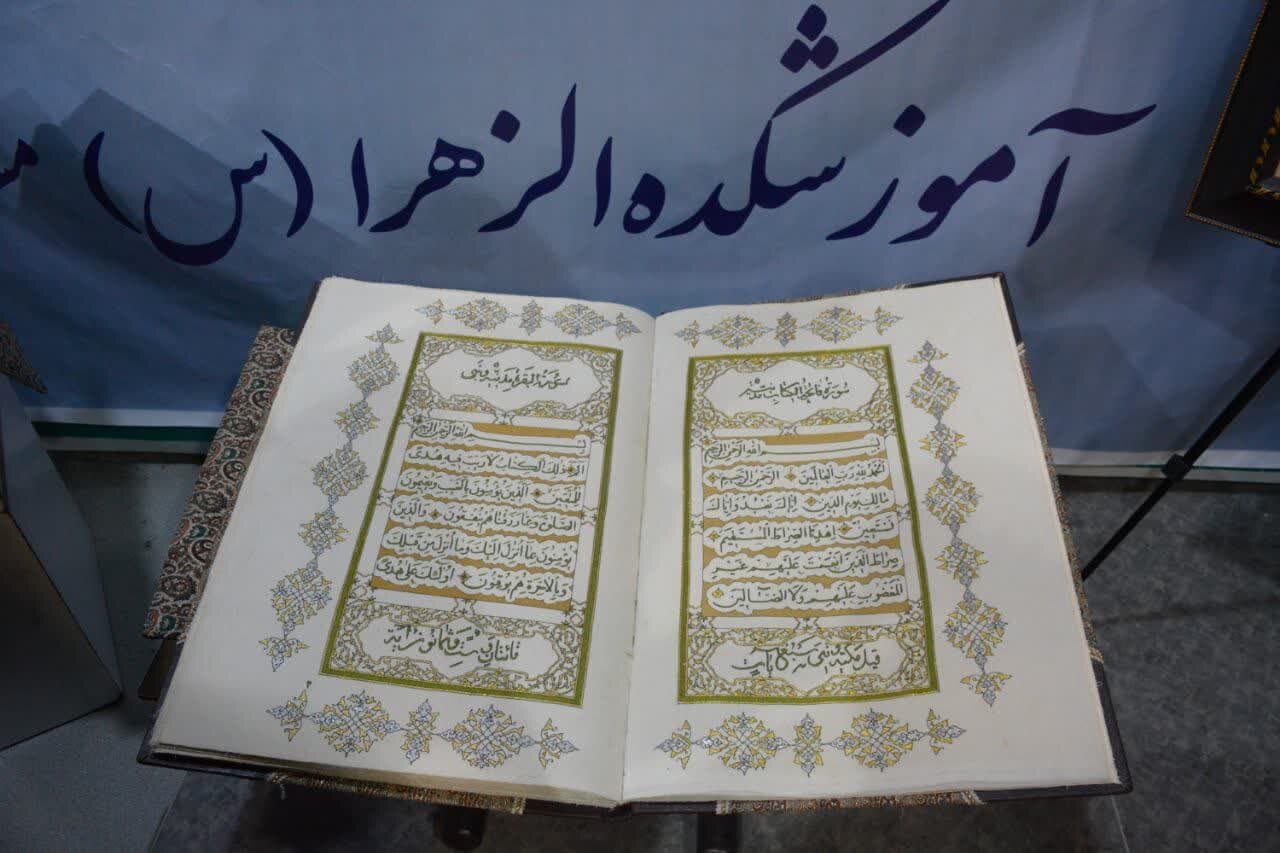 آموزشکده الزهرا (س)
سورة فاتحة الکتاب
بسم الله الرحمن الرحیم
الحمد لله رب العالمین الرحمن الرحیم
مالك یوم الدین ایاك نعبد وایاك
نستعین اهدنا الصراط المستقیم
صراط الذین انعمت علیهم غیر
المغضوب علیهم ولا الضالین
قیل مکیة وهی سبع آیات
سورة البقرة مدنیة وهی
بسم الله الرحمن الرحیم
الم ذلك الکتاب لا ریب فیه هدی
للمتقین الذین یؤمنون بالغیب ویقیمون
الصلوة ومما رزقناهم ینفقون والذین
یؤمنون بما انزل الیك وما انزل من قبلك
وبالاخرة هم یوقنون اولئك علی هدی
مائتان وست وثمانون آیة